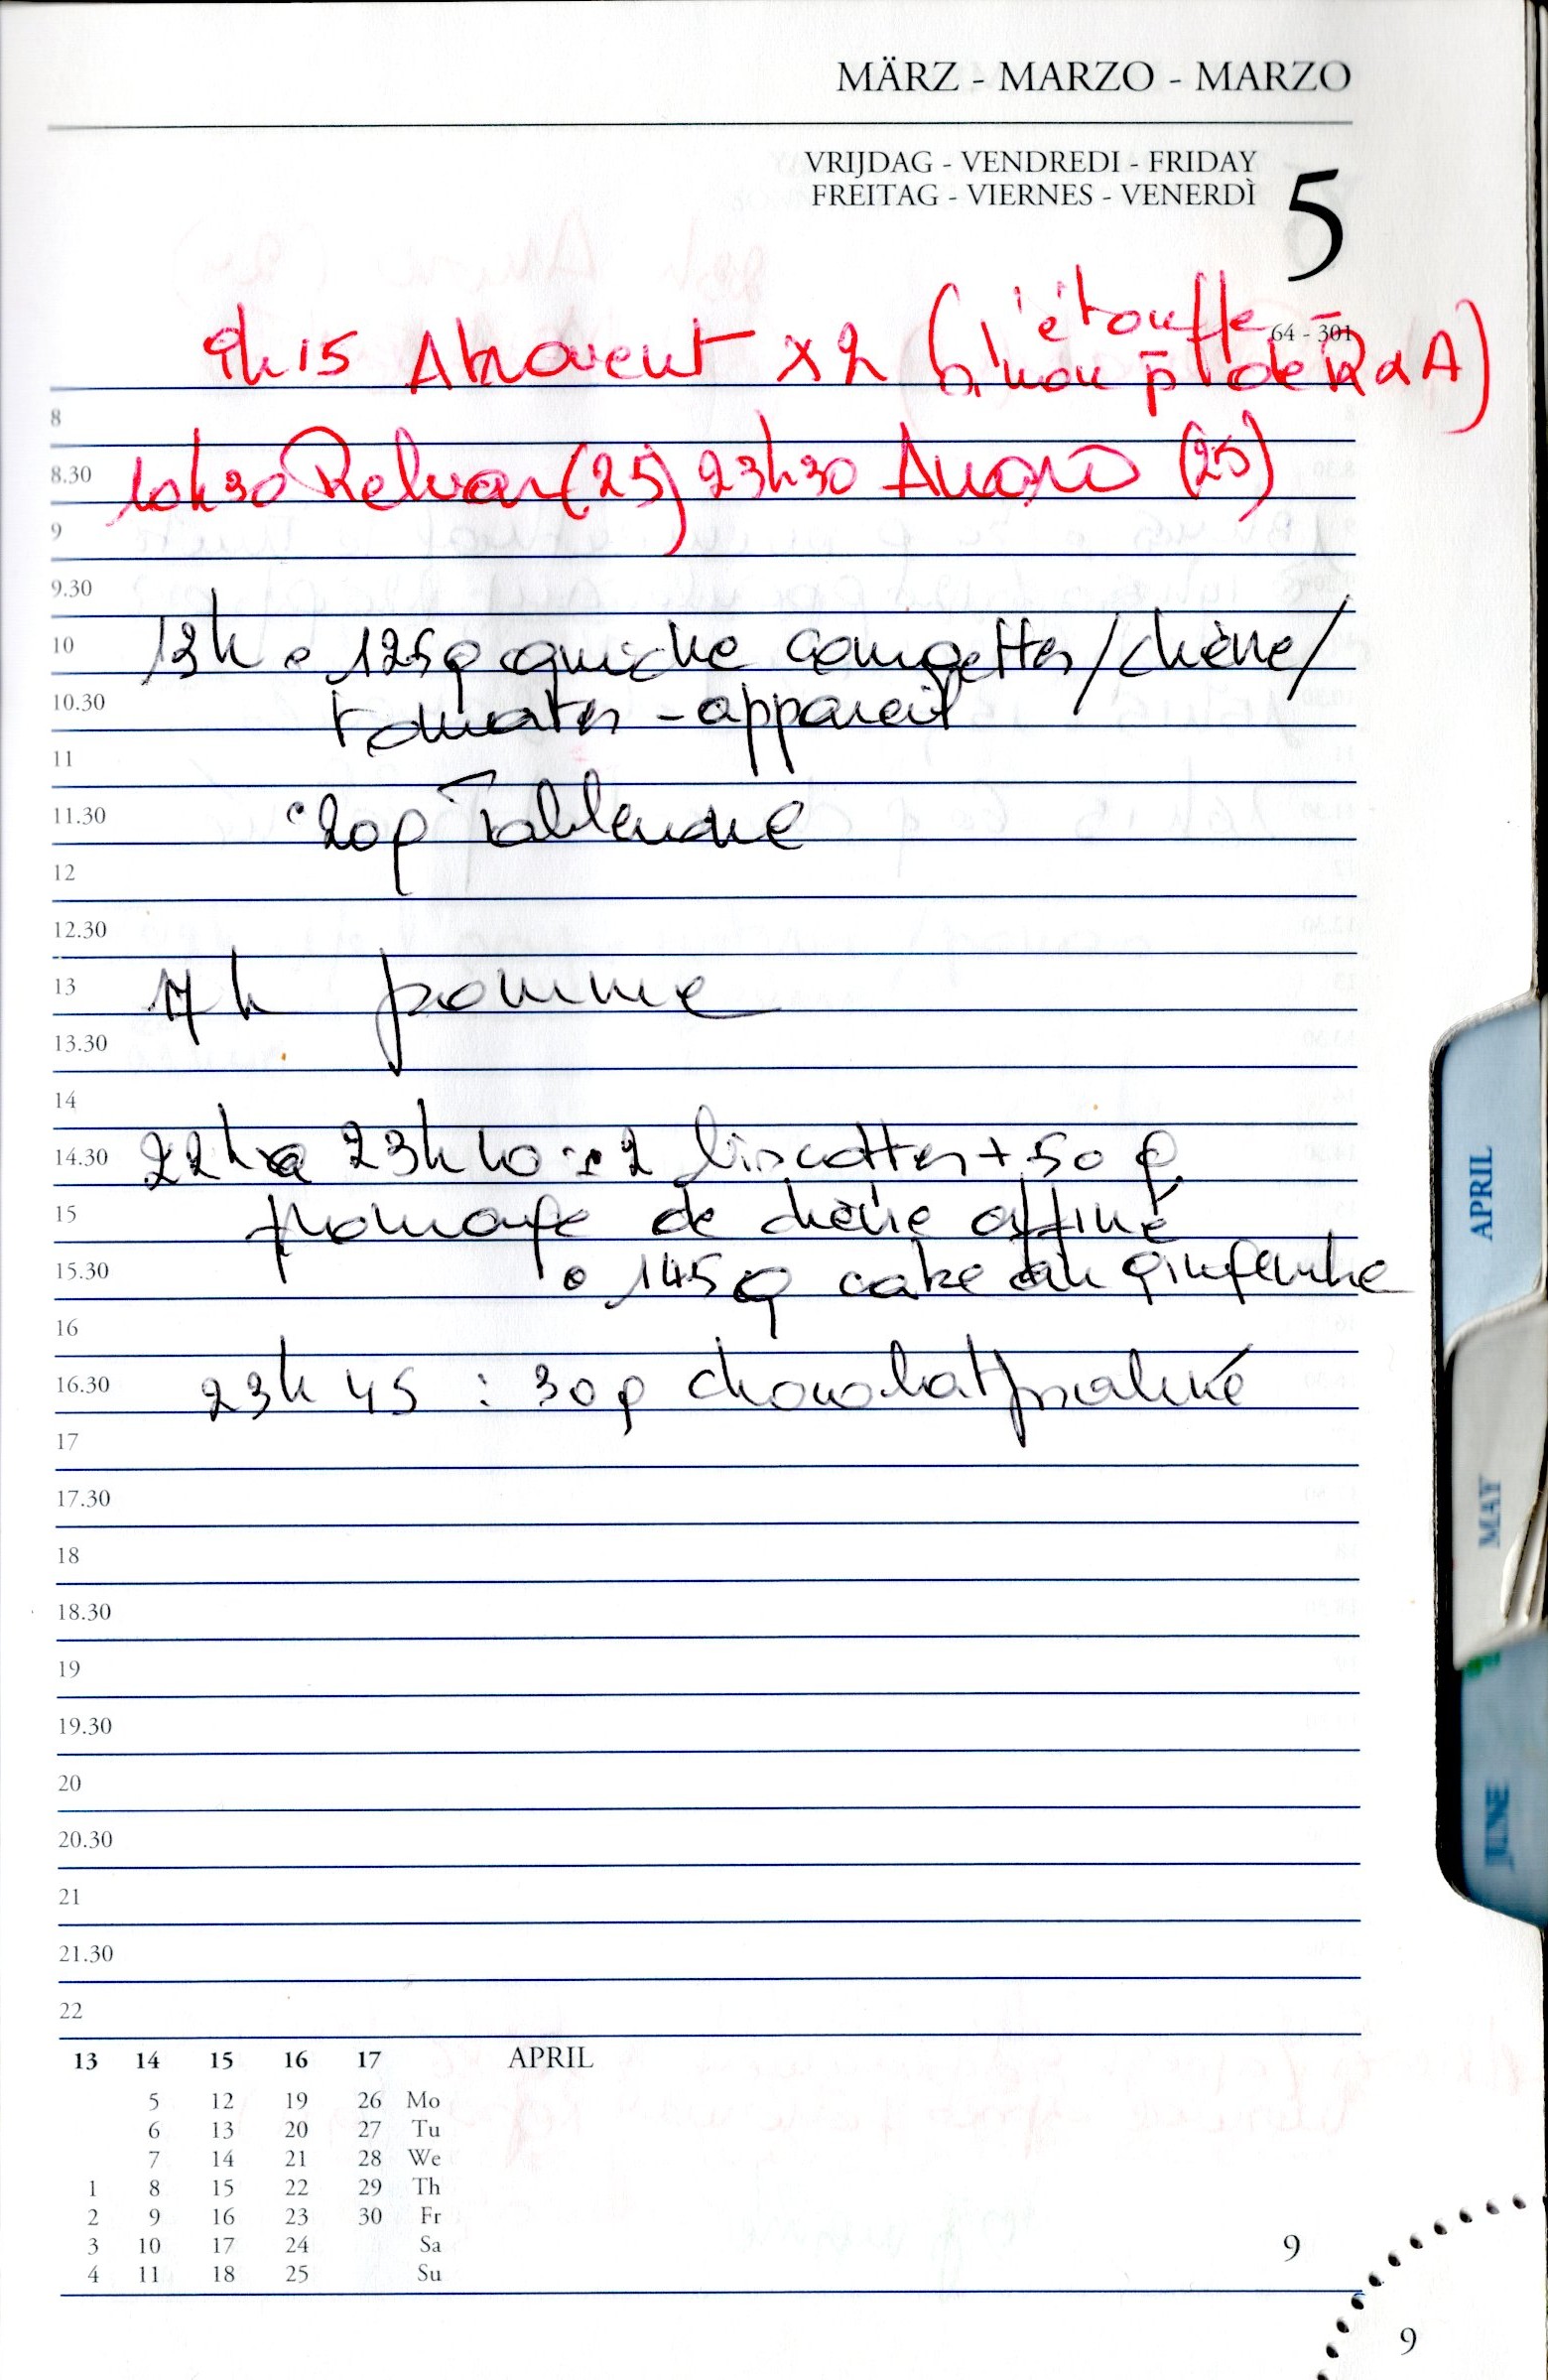 MÄRZ - MARZO - MARZO
VRIJDAG - VENDREDI - FRIDAY
FREITAG - VIERNES - VENERDÌ
5
64 - 301
9h15 Atrovent x 2 (j'étouffe
sinon p de R et A)
8
10h30 Relvar (25) 23h30 Anoro (25)
8.30
9
9.30
13h • 125g quiche courgettes/chèvre/
10
tomates - appareil
10.30
11
• 20g Toblerone
11.30
12
12.30
17h pomme
13
13.30
14
22h à 23h10 : • 2 biscottes + 50 g
14.30
fromage de chèvre affiné
15
• 145g cake au gingembre
15.30
16
23h45 : 30g chocolat praliné
16.30
17
17.30
18
18.30
19
19.30
20
20.30
21
21.30
22
13 14 15 16 17 APRIL
5 12 19 26 Mo
6 13 20 27 Tu
7 14 21 28 We
1 8 15 22 29 Th
2 9 16 23 30 Fr
3 10 17 24 Sa
4 11 18 25 Su
9
9
APRIL
MAY
JUNE